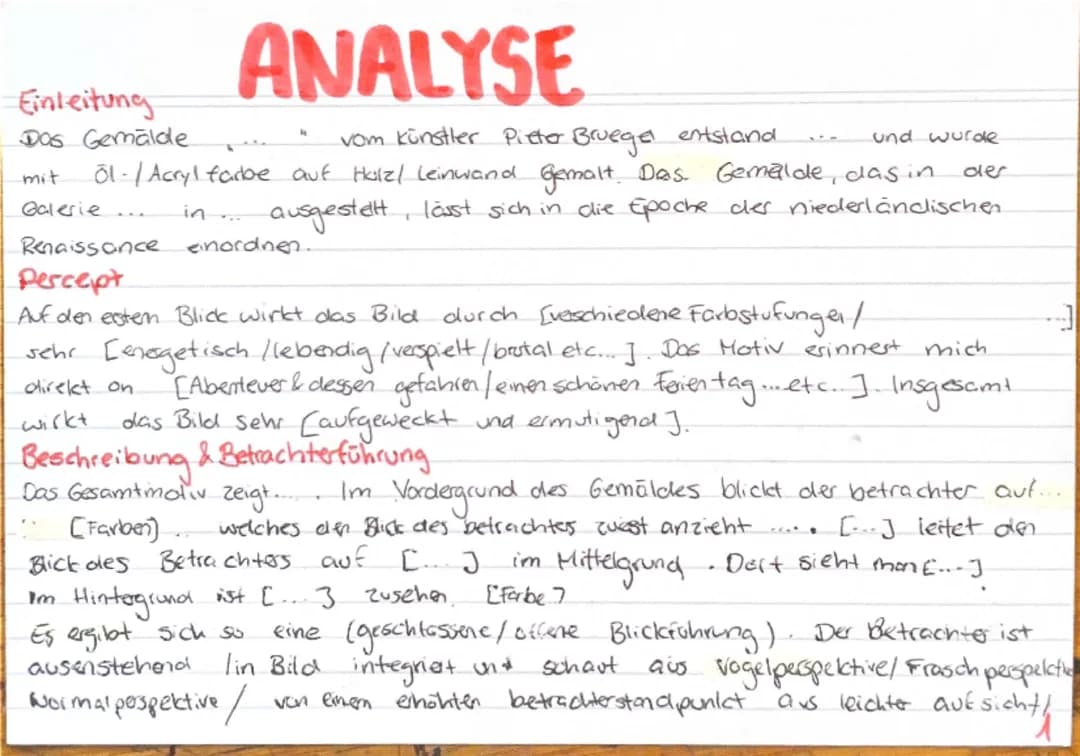 ANALYSE
Einleitung
Das Gemälde „... " vom Künstler Pieter Bruegel entstand ... und wurde
mit Öl-/Acrylfarbe auf Holz/Leinwand gemalt. Das Gemälde, das in der
Galerie ... in ... ausgestellt, lässt sich in die Epoche der niederländischen
Renaissance einordnen.
Percept
Auf den ersten Blick wirkt das Bild durch [verschiedene Farbstufungen/ ...]
sehr [energetisch/lebendig/verspielt/brutal etc...]. Das Motiv erinnert mich
direkt an [Abenteuer & dessen gefahren/einen schönen Ferientag...etc..]. Insgesamt
wirkt das Bild sehr [aufgeweckt und ermutigend].
Beschreibung & Betrachterführung
Das Gesamtmotiv zeigt.... . Im Vordergrund des Gemäldes blickt der betrachter auf...
[Farben] .. welches den Blick des betrachters zuerst anzieht ..... [...] leitet den
Blick des Betrachters auf [...] im Mittelgrund. Dort sieht man [...]
Im Hintergrund ist [...] zusehen. [Farbe]
Es ergibt sich so eine (geschlossene/offene Blickführung). Der Betrachter ist
ausenstehend /in Bild integriert und schaut aus Vogelperspektive/Froschperspektive
Normalperspektive/ von einem erhöhten betrachterstandpunkt aus leichter aufsicht/
1